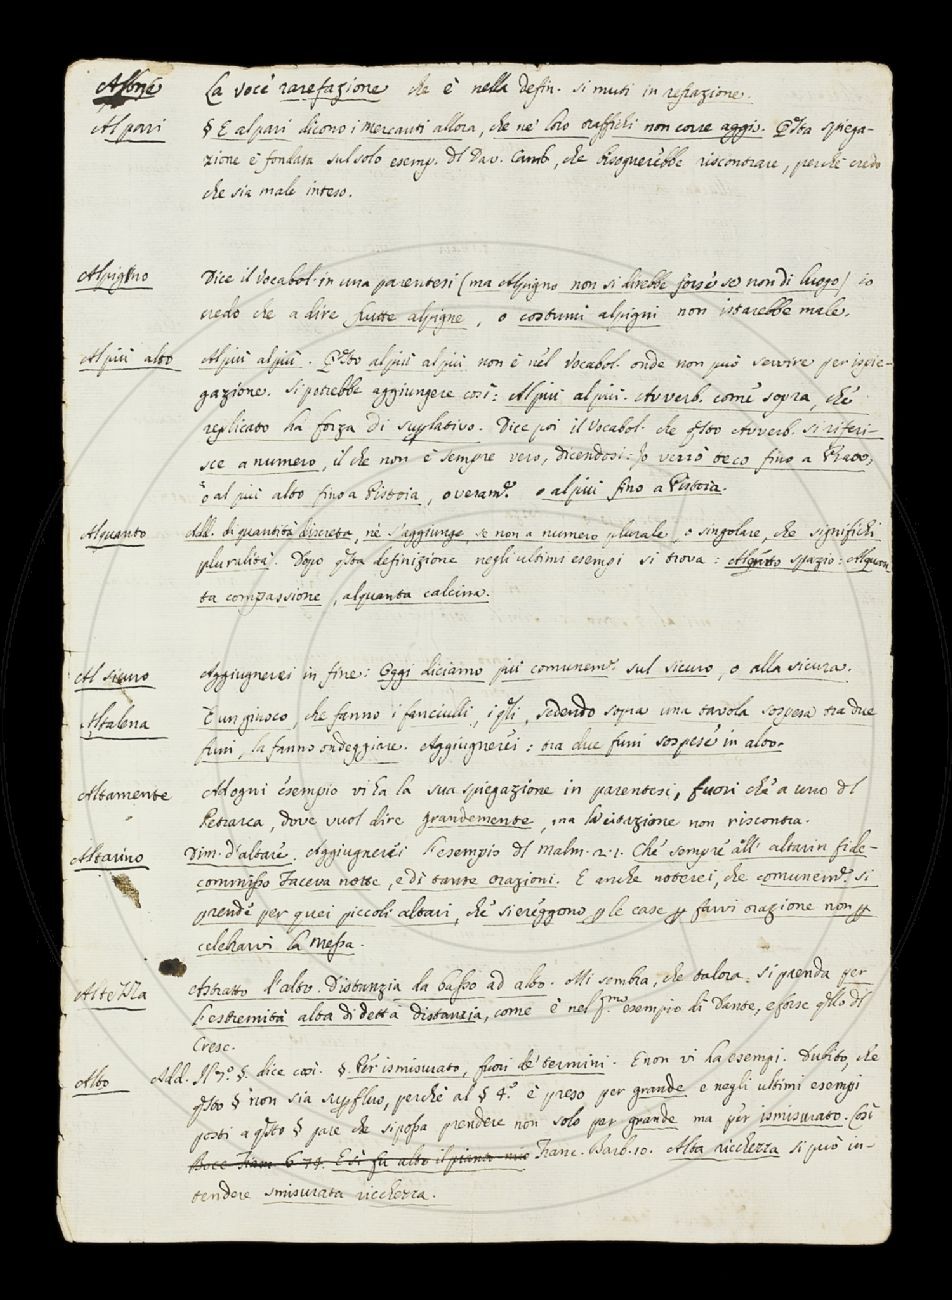 La voce rarefazione che è nella defin. si muti in refrazione.
Al pari § E al pari dicono i Mercanti allora, che ne' loro traffichi non corre aggio. Qsta spiega-
zione è fondata sul solo esemp. dl Dav. Camb, che bisognerebbe riscontrare, perchè credo
che sia male inteso.
Alpigno Dice il Vocabol. in una parentesi (ma Alpigno non si direbbe forse se non di luogo) io
credo che a dire frutte alpigne, o costumi alpigni non istarebbe male.
Al più alto Al più al più. Qsto al più al più non è nel Vocabol. onde non può servire per ispie-
gazione. Si potrebbe aggiungere così: Al più al più. Avverb. come sopra, che
replicato ha forza di supplativo. Dice poi il Vocabol. che qsto Avverb. si riferi-
sce a numero, il che non è sempre vero, dicendosi: Io verrò teco fino a Prato,
o al più alto fino a Pistoia, o veram.e o al più fino a Pistoia.
Alquanto Add. di quantità discreta, nè s'aggiunge, se non a numero plurale, o singolare, che significhi
pluralità. Dopo qsta definizione negli ultimi esempi si trova: Alquanto spazio: Alquan-
ta compassione, alquanta calcina.
Al sicuro Aggiugnerei in fine: Oggi diciamo più comunem.e sul sicuro, o alla sicura.
Altalena È un giuoco, che fanno i fanciulli, i qli, sedendo sopra una tavola sospesa tra due
funi, la fanno ondeggiare. Aggiugnerei: tra due funi sospese in alto.
Altamente Ad ogni esempio vi ha la sua spiegazione in parentesi, fuori che a uno dl
Petrarca, dove vuol dire grandemente, ma la citazione non riscontra.
Altarino Dim. d'altare, Aggiugnerei l'esempio dl Malm. 2. 1. Che sempre all' altarin fide-
commisso Faceva notte, e dì tante orazioni. E anche noterei, che comunem.e si
prende per quei piccoli altari, che si ereggono p le case p farvi orazione non p
celebrarvi la Messa.
Altezza Astratto d'alto. Distanzia da basso ad alto. Mi sembra, che talora si prenda per
l'estremità alta di detta distanzia, come è nel p.mo esempio di Dante, e forse qllo dl
Cresc.
Alto Add. Il 7.o §. dice così. §. Per ismisurato, fuori de' termini. E non vi ha esempi. Dubito, che
qsto § non sia supfluo, perchè al § 4.o è preso per grande e negli ultimi esempi
posti a qsto § pare che si possa prendere non solo per grande ma per ismisurato. Così
Franc. Barb. 10. Alta ricchezza si può in-
tendere smisurata ricchezza.